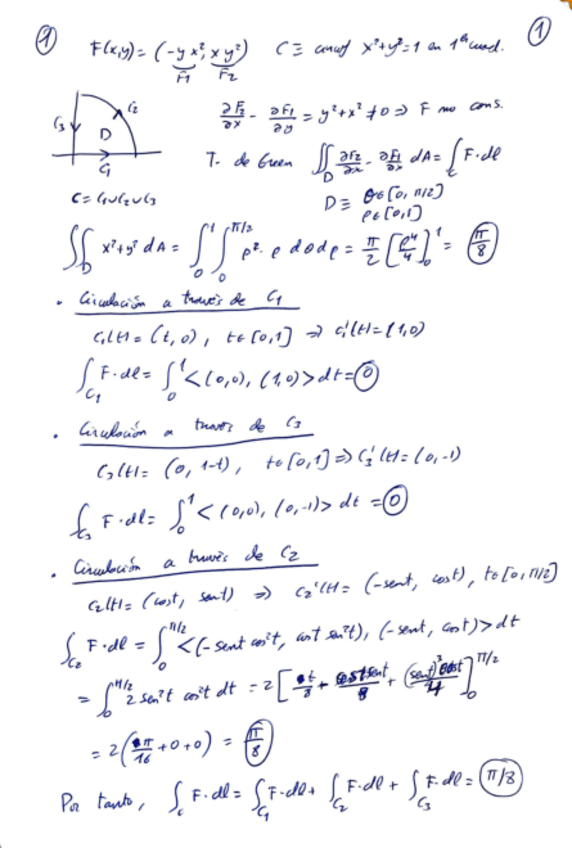 ① F(x,y) = (-y x², x y²) C ≡ x²+y²=1 en 1er cuad. ①
F₁ F₂
∂F₂/∂x - ∂F₁/∂y = y²+x² ≠ 0 ⇒ F no cons.
C₃ C₂ D C₁
T. de Green ∬_D ∂F₂/∂x - ∂F₁/∂x dA = ∫_C F·dl
C = C₁∪C₂∪C₃ D ≡ θ∈[0, π/2]
ρ∈[0,1]
∬_D x²+y² dA = ∫₀¹ ∫₀^{π/2} ρ²·ρ dθdρ = π/2 [ρ⁴/4]₀¹ = π/8
· Circulación a través de C₁
C₁(t) = (t, 0), t∈[0,1] ⇒ C₁'(t) = (1,0)
∫_{C₁} F·dl = ∫₀¹ <(0,0), (1,0)> dt = 0
· Circulación a través de C₃
C₃(t) = (0, 1-t), t∈[0,1] ⇒ C₃'(t) = (0,-1)
∫_{C₃} F·dl = ∫₀¹ <(0,0), (0,-1)> dt = 0
· Circulación a través de C₂
C₂(t) = (cost, sent) ⇒ C₂'(t) = (-sent, cost), t∈[0, π/2]
∫_{C₂} F·dl = ∫₀^{π/2} <(-sent cos²t, cost sen²t), (-sent, cost)> dt
= ∫₀^{π/2} 2 sen²t cos²t dt = 2 [t/8 + cost sent/8 + (sent)³ cost/4]₀^{π/2}
= 2 (π/16 + 0 + 0) = π/8
Por tanto, ∫_C F·dl = ∫_{C₁} F·dl + ∫_{C₂} F·dl + ∫_{C₃} F·dl = π/8